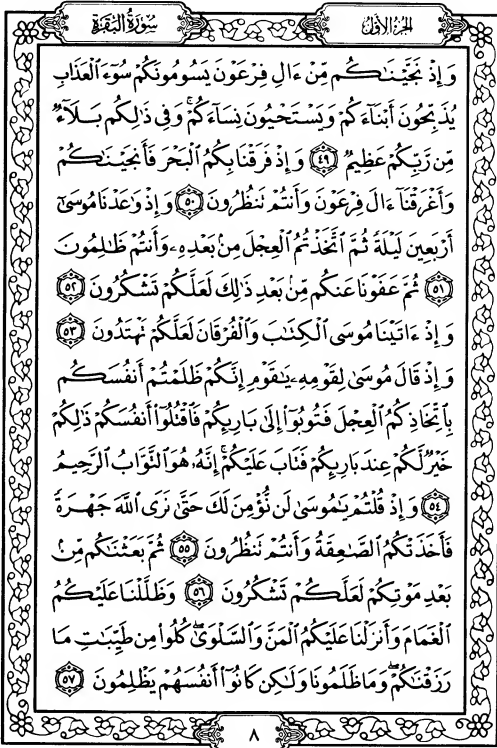 الجزء الأول
سورة البقرة
وَإِذْ نَجَّيْنَاكُم مِّنْ ءَالِ فِرْعَوْنَ يَسُومُونَكُمْ سُوٓءَ الْعَذَابِ
يُذَبِّحُونَ أَبْنَآءَكُمْ وَيَسْتَحْيُونَ نِسَآءَكُمْ ۚ وَفِي ذَٰلِكُم بَلَآءٌ
مِّن رَّبِّكُمْ عَظِيمٌ ٤٩ وَإِذْ فَرَقْنَا بِكُمُ الْبَحْرَ فَأَنجَيْنَاكُمْ
وَأَغْرَقْنَآ ءَالَ فِرْعَوْنَ وَأَنتُمْ تَنظُرُونَ ٥٠ وَإِذْ وَٰعَدْنَا مُوسَىٰٓ
أَرْبَعِينَ لَيْلَةً ثُمَّ اتَّخَذْتُمُ الْعِجْلَ مِنۢ بَعْدِهِۦ وَأَنتُمْ ظَٰلِمُونَ
٥١ ثُمَّ عَفَوْنَا عَنكُم مِّنۢ بَعْدِ ذَٰلِكَ لَعَلَّكُمْ تَشْكُرُونَ ٥٢
وَإِذْ ءَاتَيْنَا مُوسَى الْكِتَٰبَ وَالْفُرْقَانَ لَعَلَّكُمْ تَهْتَدُونَ ٥٣
وَإِذْ قَالَ مُوسَىٰ لِقَوْمِهِۦ يَٰقَوْمِ إِنَّكُمْ ظَلَمْتُمْ أَنفُسَكُم
بِاتِّخَاذِكُمُ الْعِجْلَ فَتُوبُوٓا إِلَىٰ بَارِئِكُمْ فَاقْتُلُوٓا أَنفُسَكُمْ ذَٰلِكُمْ
خَيْرٌ لَّكُمْ عِندَ بَارِئِكُمْ فَتَابَ عَلَيْكُمْ ۚ إِنَّهُۥ هُوَ التَّوَّابُ الرَّحِيمُ
٥٤ وَإِذْ قُلْتُمْ يَٰمُوسَىٰ لَن نُّؤْمِنَ لَكَ حَتَّىٰ نَرَى اللَّهَ جَهْرَةً
فَأَخَذَتْكُمُ الصَّٰعِقَةُ وَأَنتُمْ تَنظُرُونَ ٥٥ ثُمَّ بَعَثْنَٰكُم مِّنۢ
بَعْدِ مَوْتِكُمْ لَعَلَّكُمْ تَشْكُرُونَ ٥٦ وَظَلَّلْنَا عَلَيْكُمُ
الْغَمَامَ وَأَنزَلْنَا عَلَيْكُمُ الْمَنَّ وَالسَّلْوَىٰ ۖ كُلُوا مِن طَيِّبَٰتِ مَا
رَزَقْنَٰكُمْ ۖ وَمَا ظَلَمُونَا وَلَٰكِن كَانُوٓا أَنفُسَهُمْ يَظْلِمُونَ ٥٧
٨